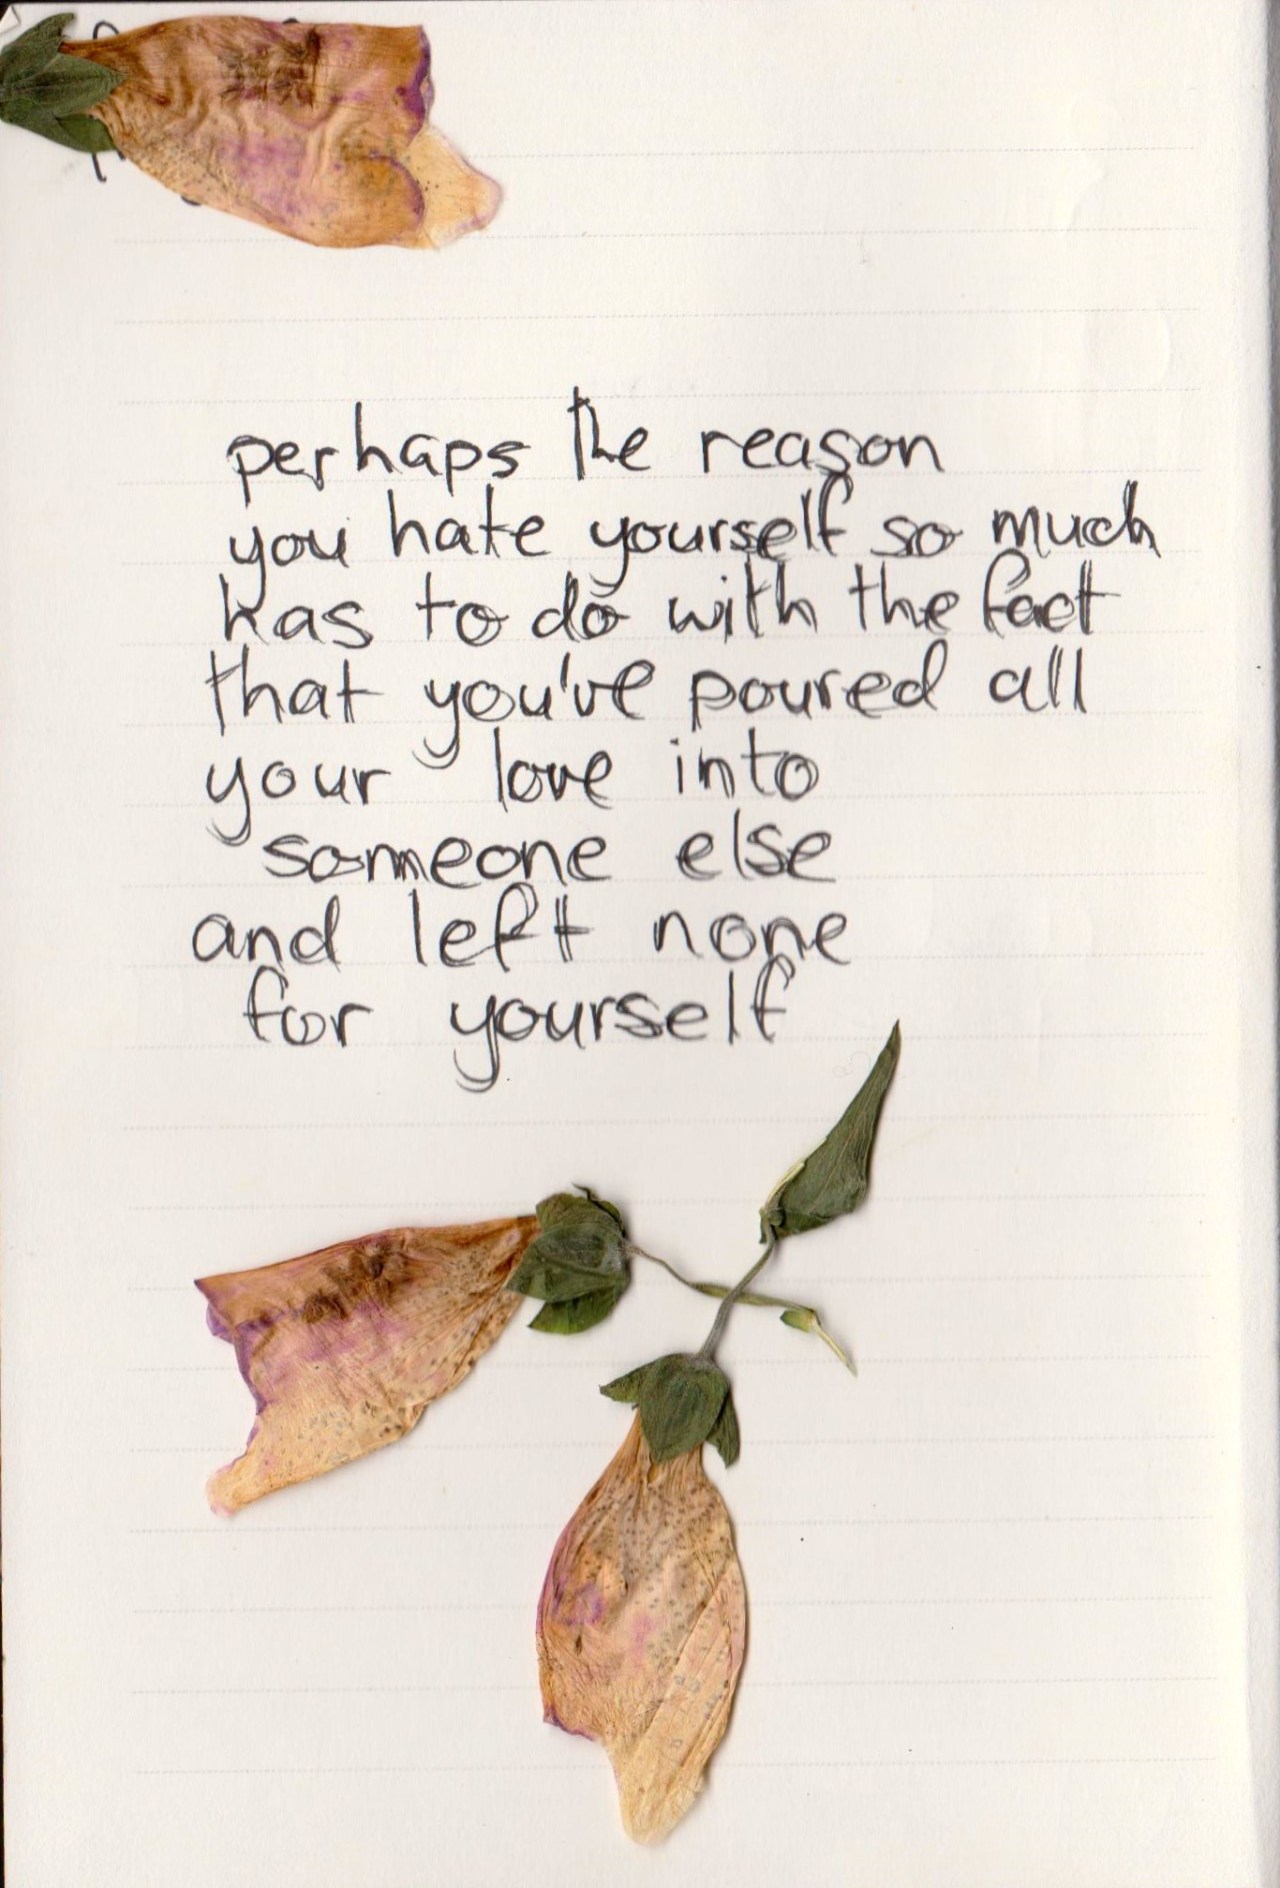 perhaps the reason
you hate yourself so much
has to do with the fact
that you've poured all
your love into
someone else
and left none
for yourself